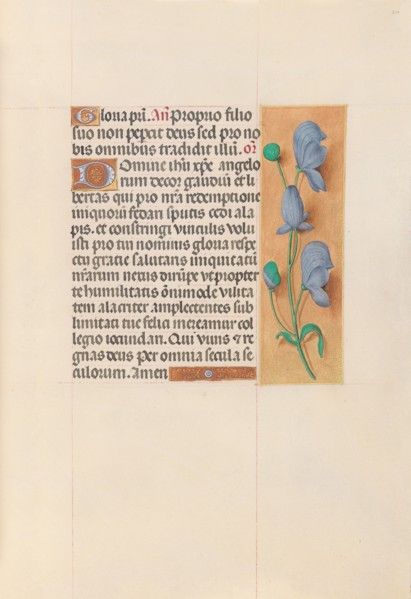 Gloria pri. An̄ Proprio filio
suo non peꝑcit deus sed pro no
bis omnibus tradidit illū. or̄
Domine ihū xp̄e angelo
rum decor gaudiū et li
bertas qui pro nr̄a redemptione
iniquorū fedari sputis cedi ala
pis. et constringi vinculis volu
isti pro tui nominis gloria respe
ctu gratie salutaris iniquitatū
nr̄arum nexus dirūpe vt propter
te humilitatis ōnimode vilita
tem alacriter amplectentes sub
limitati tue felici mereamur col
legio iocundari. Qui viuis ⁊ re
gnas deus per omnia secula se
culorum. Amen